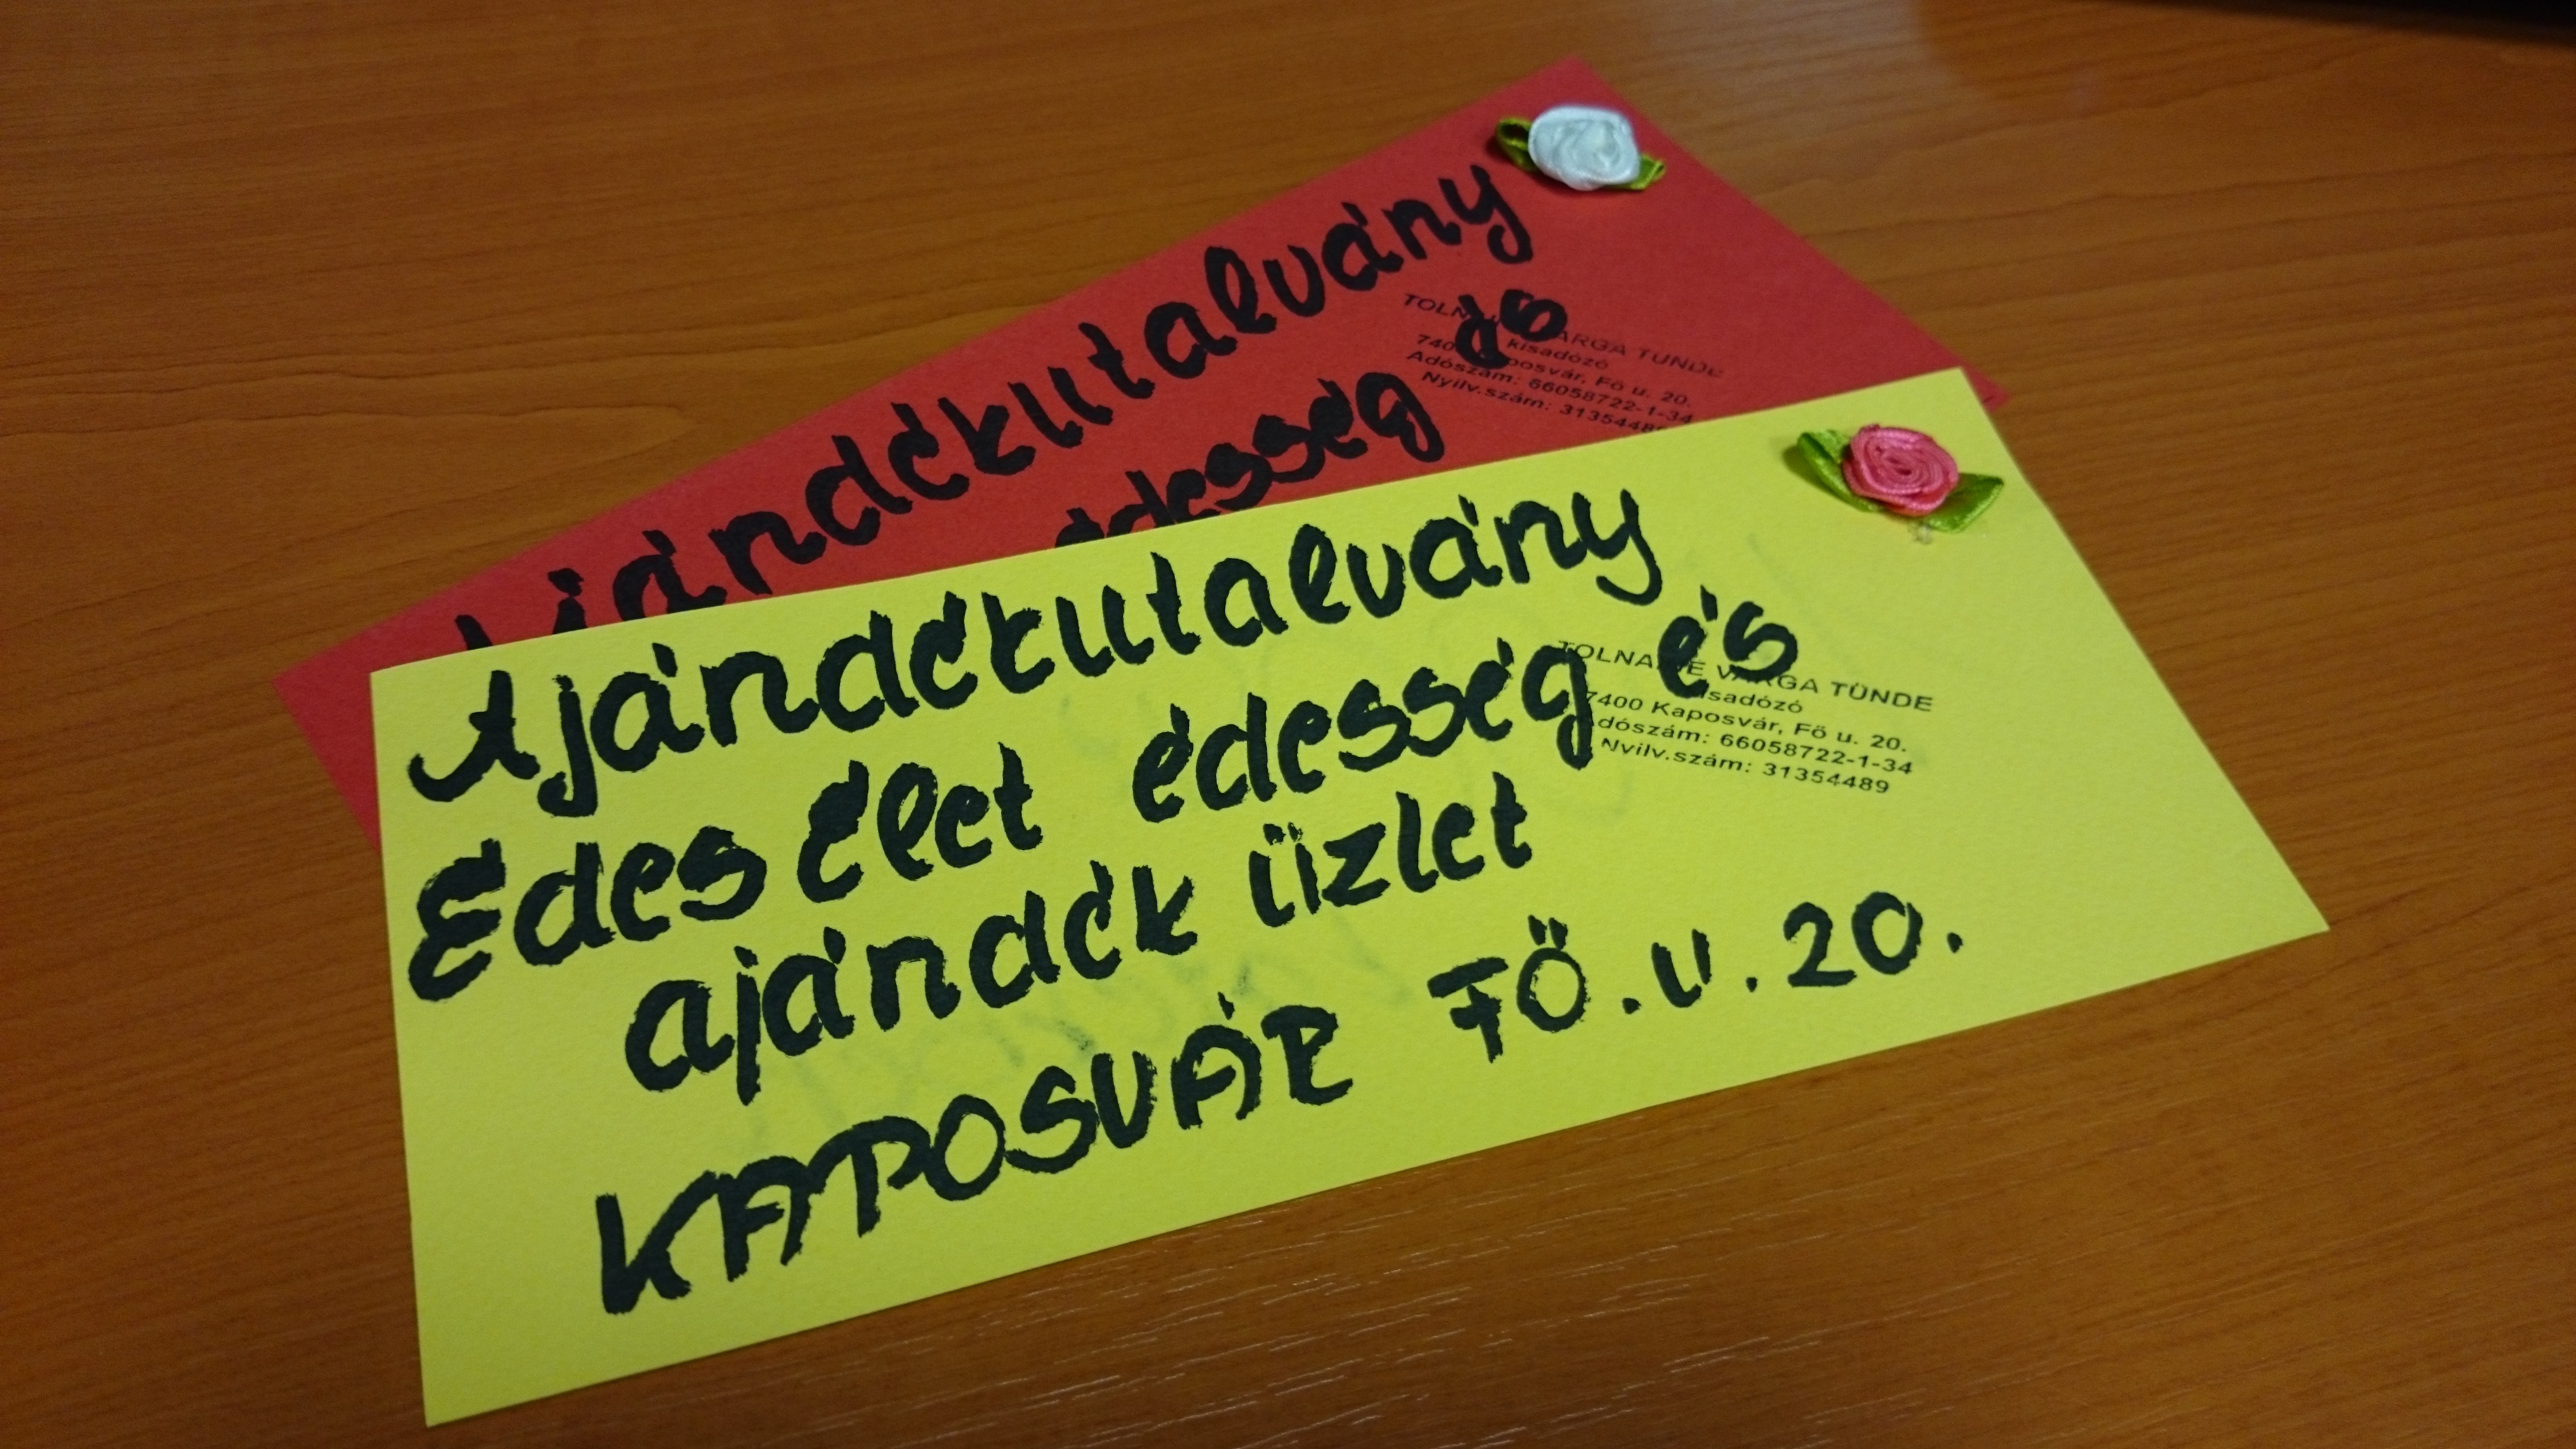 Ajándékutalvány
édesség és
VARGA TÜNDE
kisadózó
Kaposvár, Fő u. 20.
Adószám: 66058722-1-34
Nyilv.szám: 31354489
Ajándékutalvány
Édes Élet édesség és
ajándék üzlet
KAPOSVÁR FŐ.U.20.
VARGA TÜNDE
kisadózó
7400 Kaposvár, Fő u. 20.
Adószám: 66058722-1-34
Nyilv.szám: 31354489